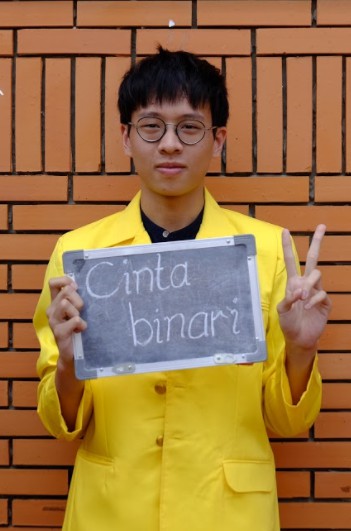 Cinta
binari